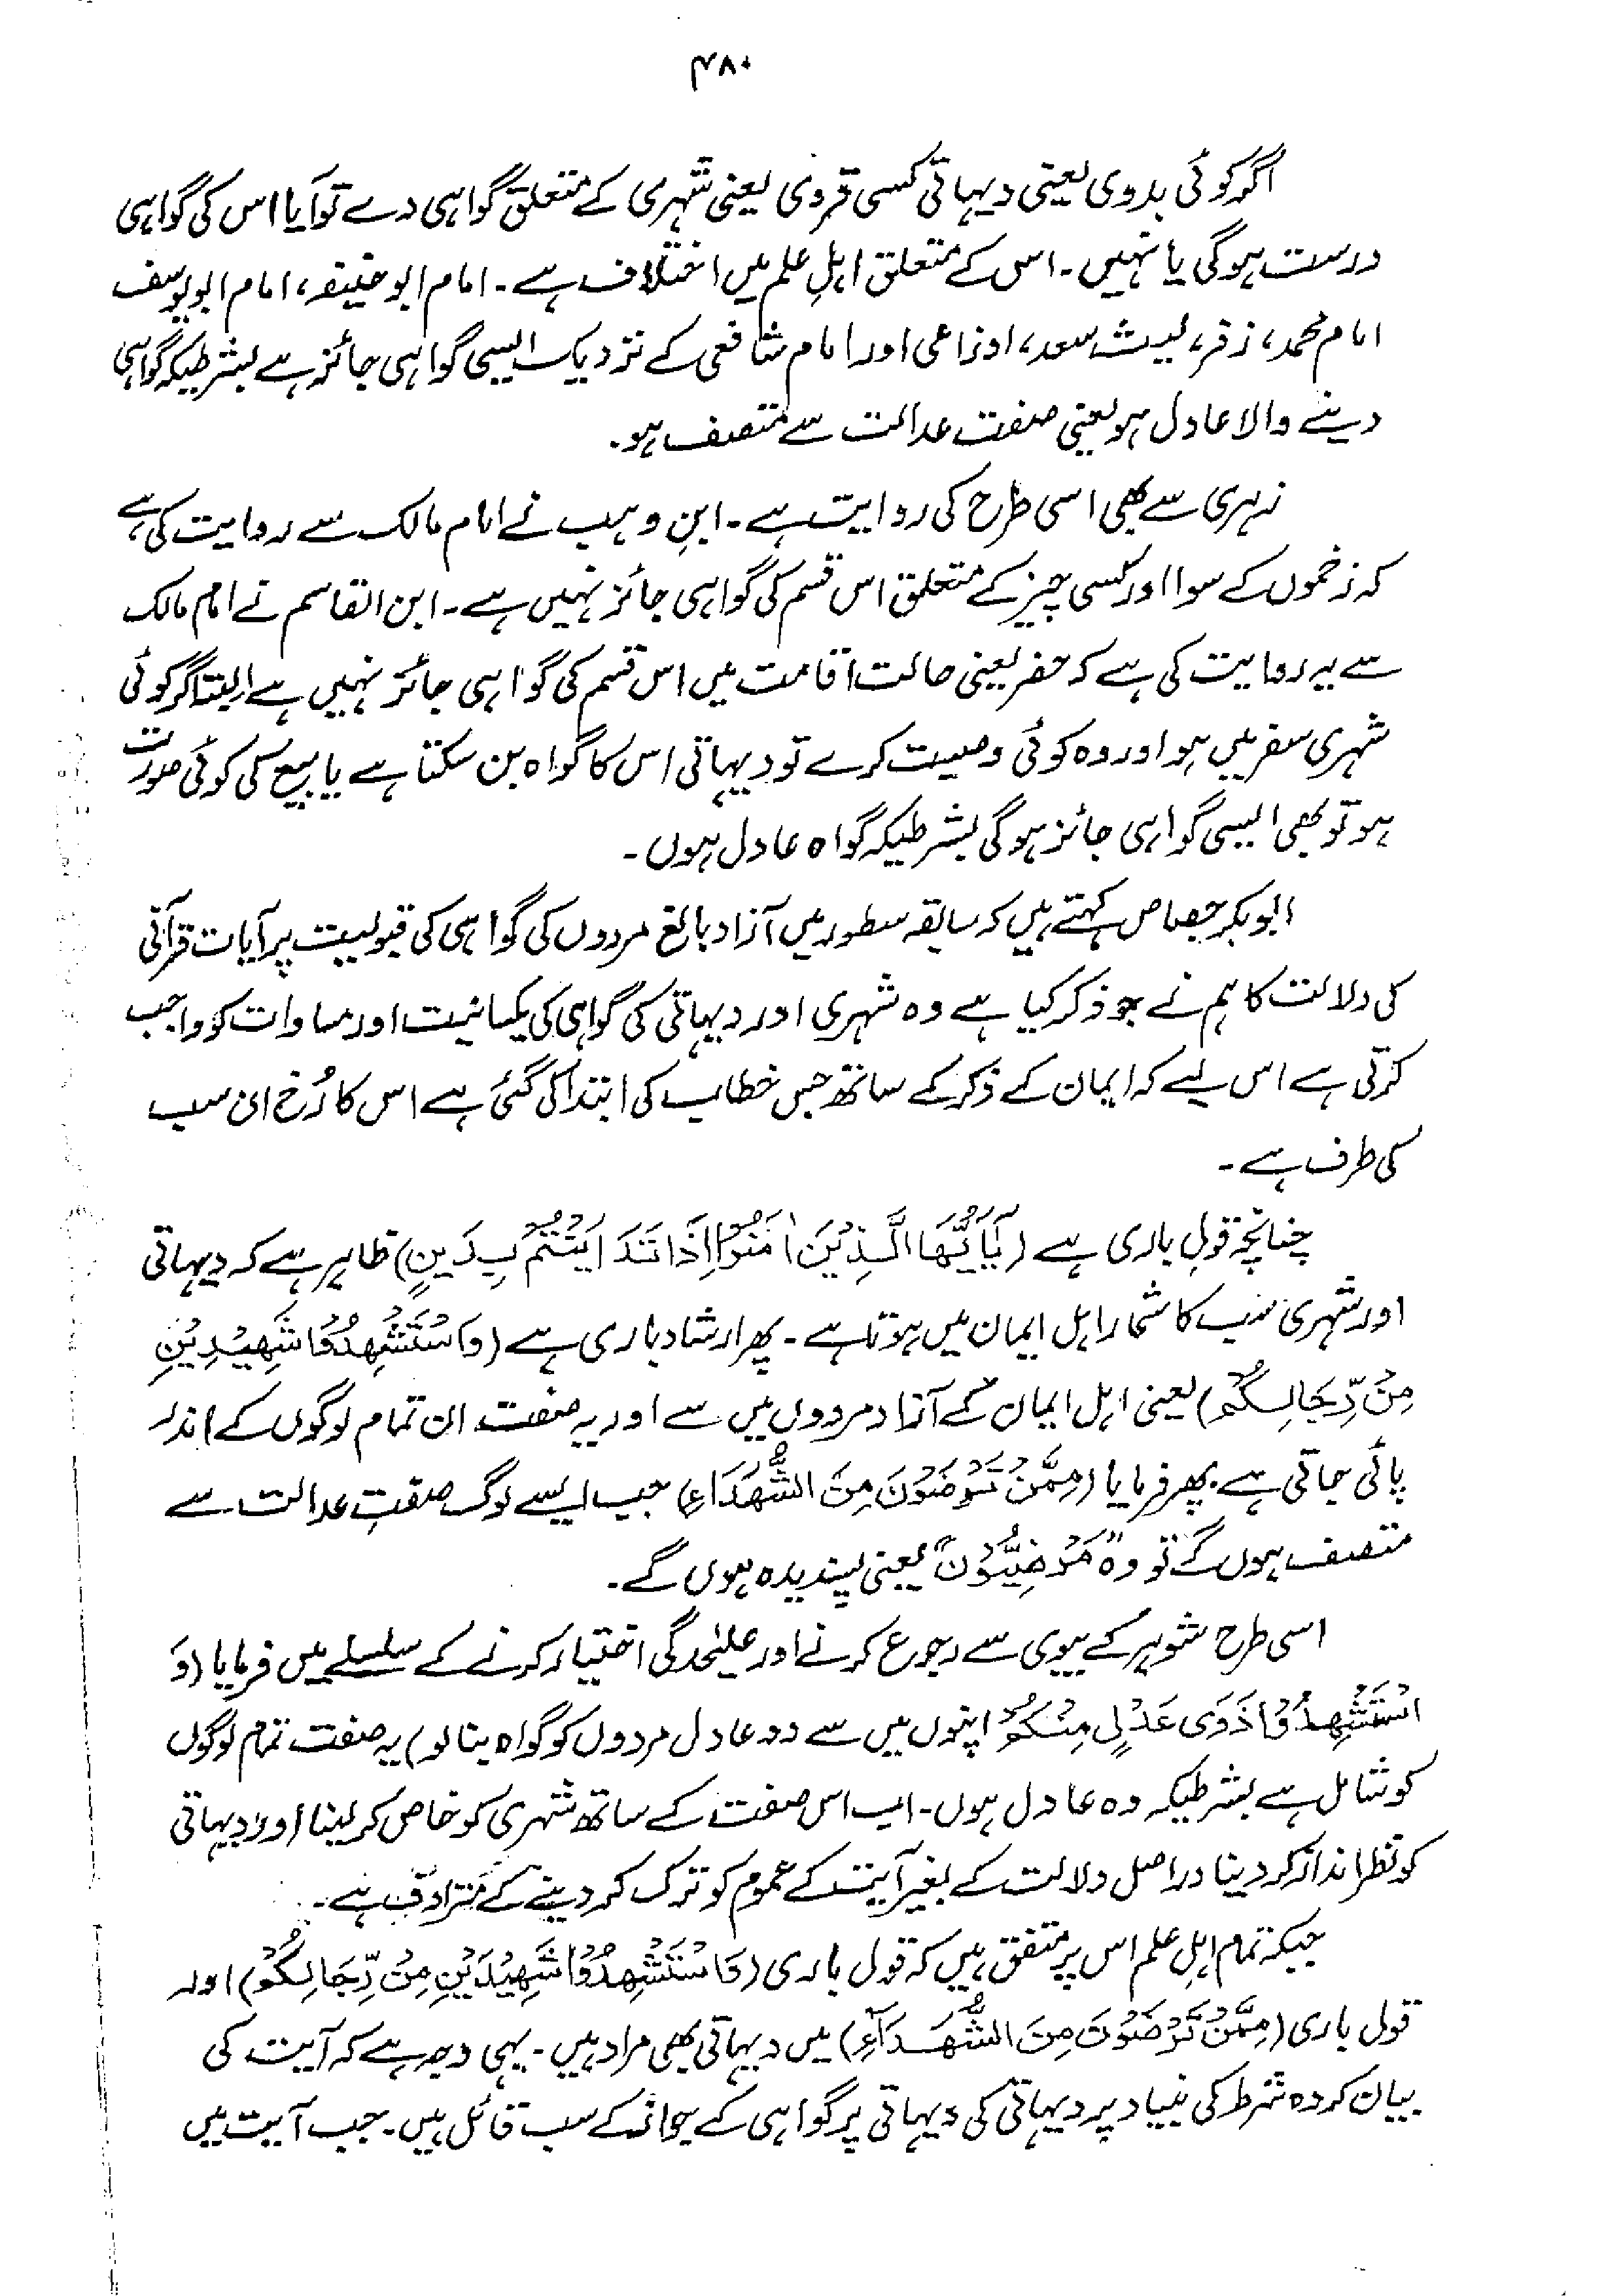 ۴۸۰
اگر کوئی بدوی یعنی دیہاتی کسی قروی یعنی شہری کے متعلق گواہی دے تو آیا اس کی گواہی
درست ہوگی یا نہیں۔ اس کے متعلق اہلِ علم میں اختلاف ہے۔ امام ابو حنیفہ، امام ابو یوسف
امام محمد، زفر، لیث سعد، اوزاعی اور امام شافعی کے نزدیک ایسی گواہی جائز ہے بشرطیکہ گواہی
دینے والا عادل ہو یعنی صفت عدالت سے متصف ہو۔
زہری سے بھی اسی طرح کی روایت ہے۔ ابنِ وہب نے امام مالک سے روایت کی ہے
کہ زخموں کے سوا اور کسی چیز کے متعلق اس قسم کی گواہی جائز نہیں ہے۔ ابن القاسم نے امام مالک
سے یہ روایت کی ہے کہ حضر یعنی حالت اقامت میں اس قسم کی گواہی جائز نہیں ہے البتہ اگر کوئی
شہری سفر میں ہو اور وہ کوئی وصیت کرے تو دیہاتی اس کا گواہ بن سکتا ہے یا بیع کی کوئی صورت
ہو تو بھی ایسی گواہی جائز ہوگی بشرطیکہ گواہ عادل ہوں۔
ابوبکر جصاص کہتے ہیں کہ سابقہ سطور میں آزاد بالغ مردوں کی گواہی کی قبولیت پر آیات قرآنی
کی دلالت کا ہم نے جو ذکر کیا ہے وہ شہری اور دیہاتی کی گواہی کی یکسانیت اور مساوات کو واجب
کرتی ہے اس لیے کہ ایمان کے ذکر کے ساتھ جس خطاب کی ابتدا کی گئی ہے اس کا رُخ ان سب
کی طرف ہے۔
چنانچہ قولِ باری ہے (یٰٓاَیُّھَا الَّذِیْنَ اٰمَنُوْا اِذَا تَدَایَنْتُمْ بِدَیْنٍ) ظاہر ہے کہ دیہاتی
اور شہری سب کا شمار اہل ایمان میں ہوتا ہے۔ پھر ارشاد باری ہے (وَاسْتَشْھِدُوْا شَھِیْدَیْنِ
مِنْ رِّجَالِکُمْ) یعنی اہل ایمان کے آزاد مردوں میں سے اور یہ صفت ان تمام لوگوں کے اندر
پائی جاتی ہے۔ پھر فرمایا (مِمَّنْ تَرْضَوْنَ مِنَ الشُّھَدَاءِ) جب ایسے لوگ صفتِ عدالت سے
متصف ہوں گے تو وہ "مَرْضِیُّوْنَ" یعنی پسندیدہ ہوں گے۔
اسی طرح شوہر کے بیوی سے رجوع کرنے اور علیٰحدگی اختیار کرنے کے سلسلے میں فرمایا (وَ
اسْتَشْھِدُوْا ذَوَی عَدْلٍ مِنْکُمْ اپنوں میں سے دو عادل مردوں کو گواہ بنا لو) یہ صفت تمام لوگوں
کو شامل ہے بشرطیکہ وہ عادل ہوں۔ اب اس صفت کے ساتھ شہری کو خاص کر لینا اور دیہاتی
کو نظر انداز کر دینا دراصل دلالت کے بغیر آیت کے عموم کو ترک کر دینے کے مترادف ہے۔
جبکہ تمام اہلِ علم اس پر متفق ہیں کہ قول باری (وَاسْتَشْھِدُوْا شَھِیْدَیْنِ مِنْ رِّجَالِکُمْ) اور
قول باری (مِمَّنْ تَرْضَوْنَ مِنَ الشُّھَدَآءِ) میں دیہاتی بھی مراد ہیں۔ یہی وجہ ہے کہ آیت کی
بیان کردہ شرط کی بنیاد پر دیہاتی کی دیہاتی پر گواہی کے جواز کے سب قائل ہیں۔ جب آیت میں